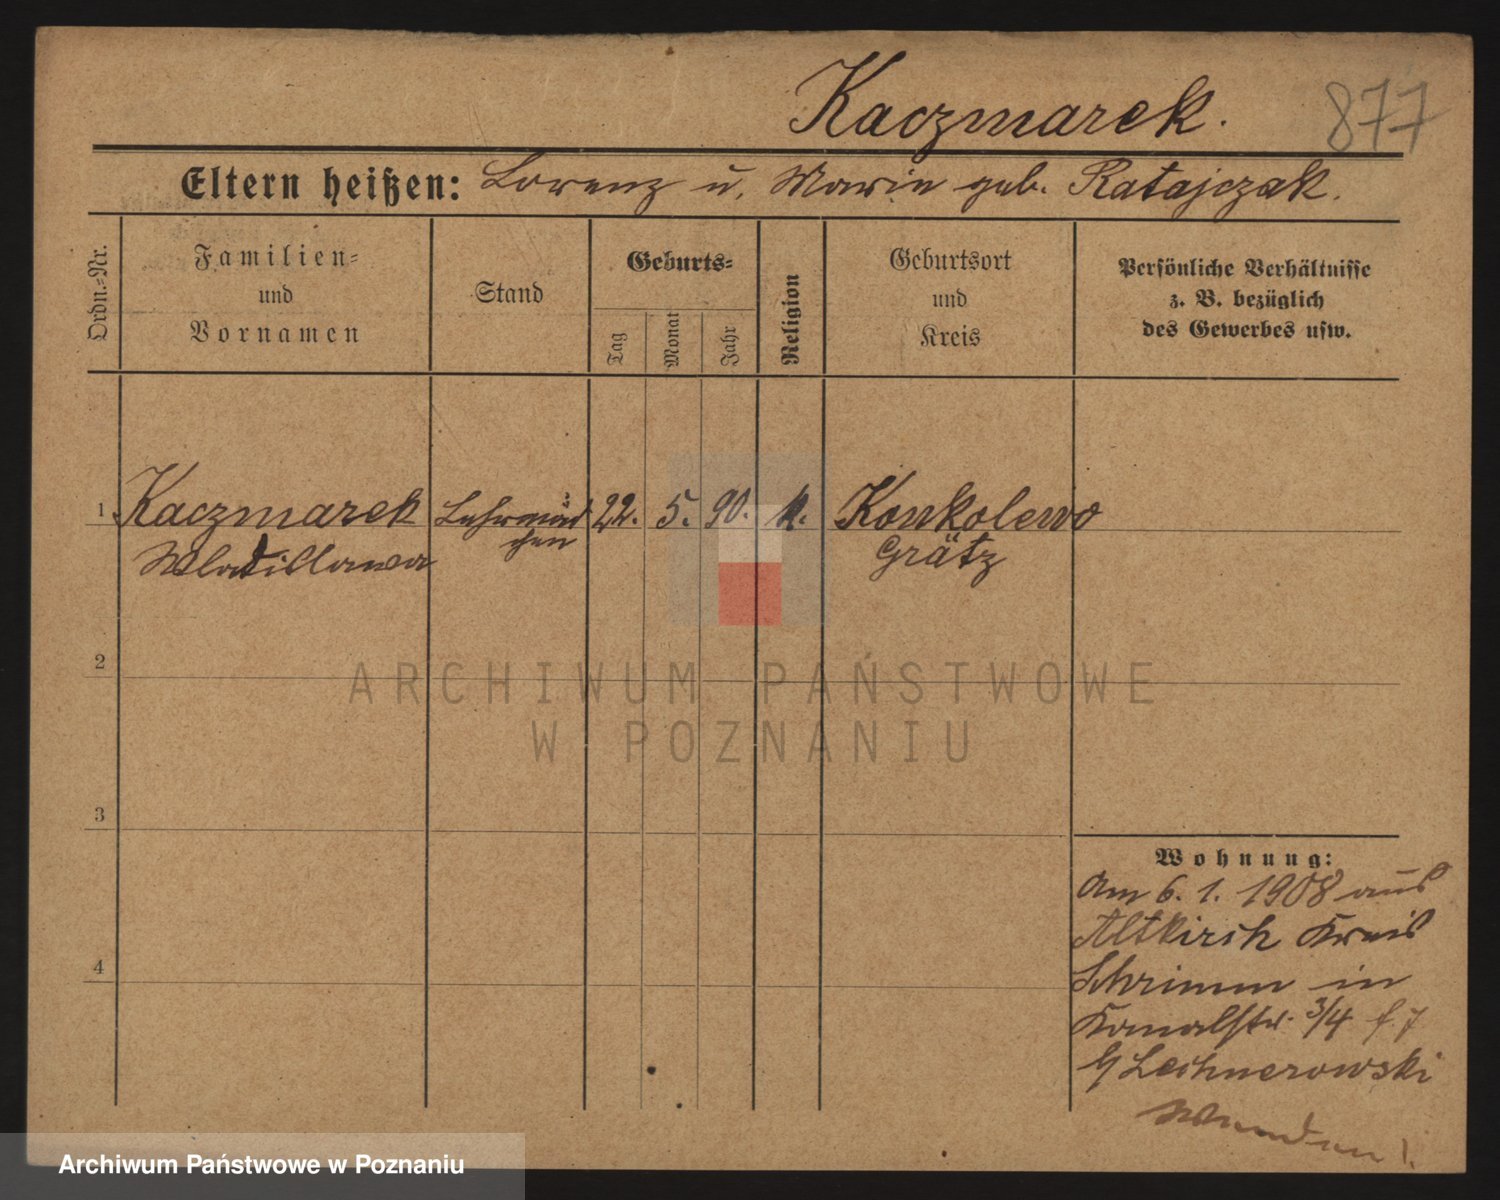 Kaczmarek. 877
Eltern heißen: Lorenz u. Marie geb. Ratajczak.
Ordn.-Nr.
Familien-
und
Vornamen
Stand
Geburts-
Tag
Monat
Jahr
Religion
Geburtsort
und
Kreis
Persönliche Verhältnisse
z. B. bezüglich
des Gewerbes usw.
1 Kaczmarek Lehrmäd 22. 5. 90. k. Konkolewo
Wladislawa chen Grätz
2
ARCHIWUM PAŃSTWOWE
W POZNANIU
3
Wohnung:
Am 6. 1. 1908 aus
Altkirch Kreis
4
Schrimm in
Kanalstr. 3/4
Lechnerowski
Wenden!
Archiwum Państwowe w Poznaniu